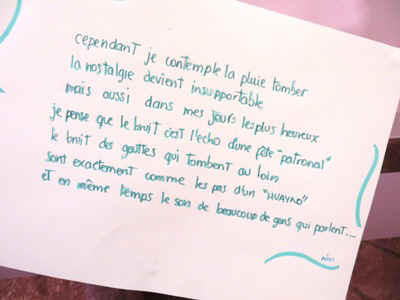 cependant je contemple la pluie tomber
la nostalgie devient insupportable
mais aussi dans mes jours les plus heureux
je pense que le bruit c'est l'echo d'une fête "patronal"
le bruit des gouttes qui tombent au loin
sont exactement comme les pas d'un "HUAYNO"
et en même temps le son de beaucoup de gens qui parlent...